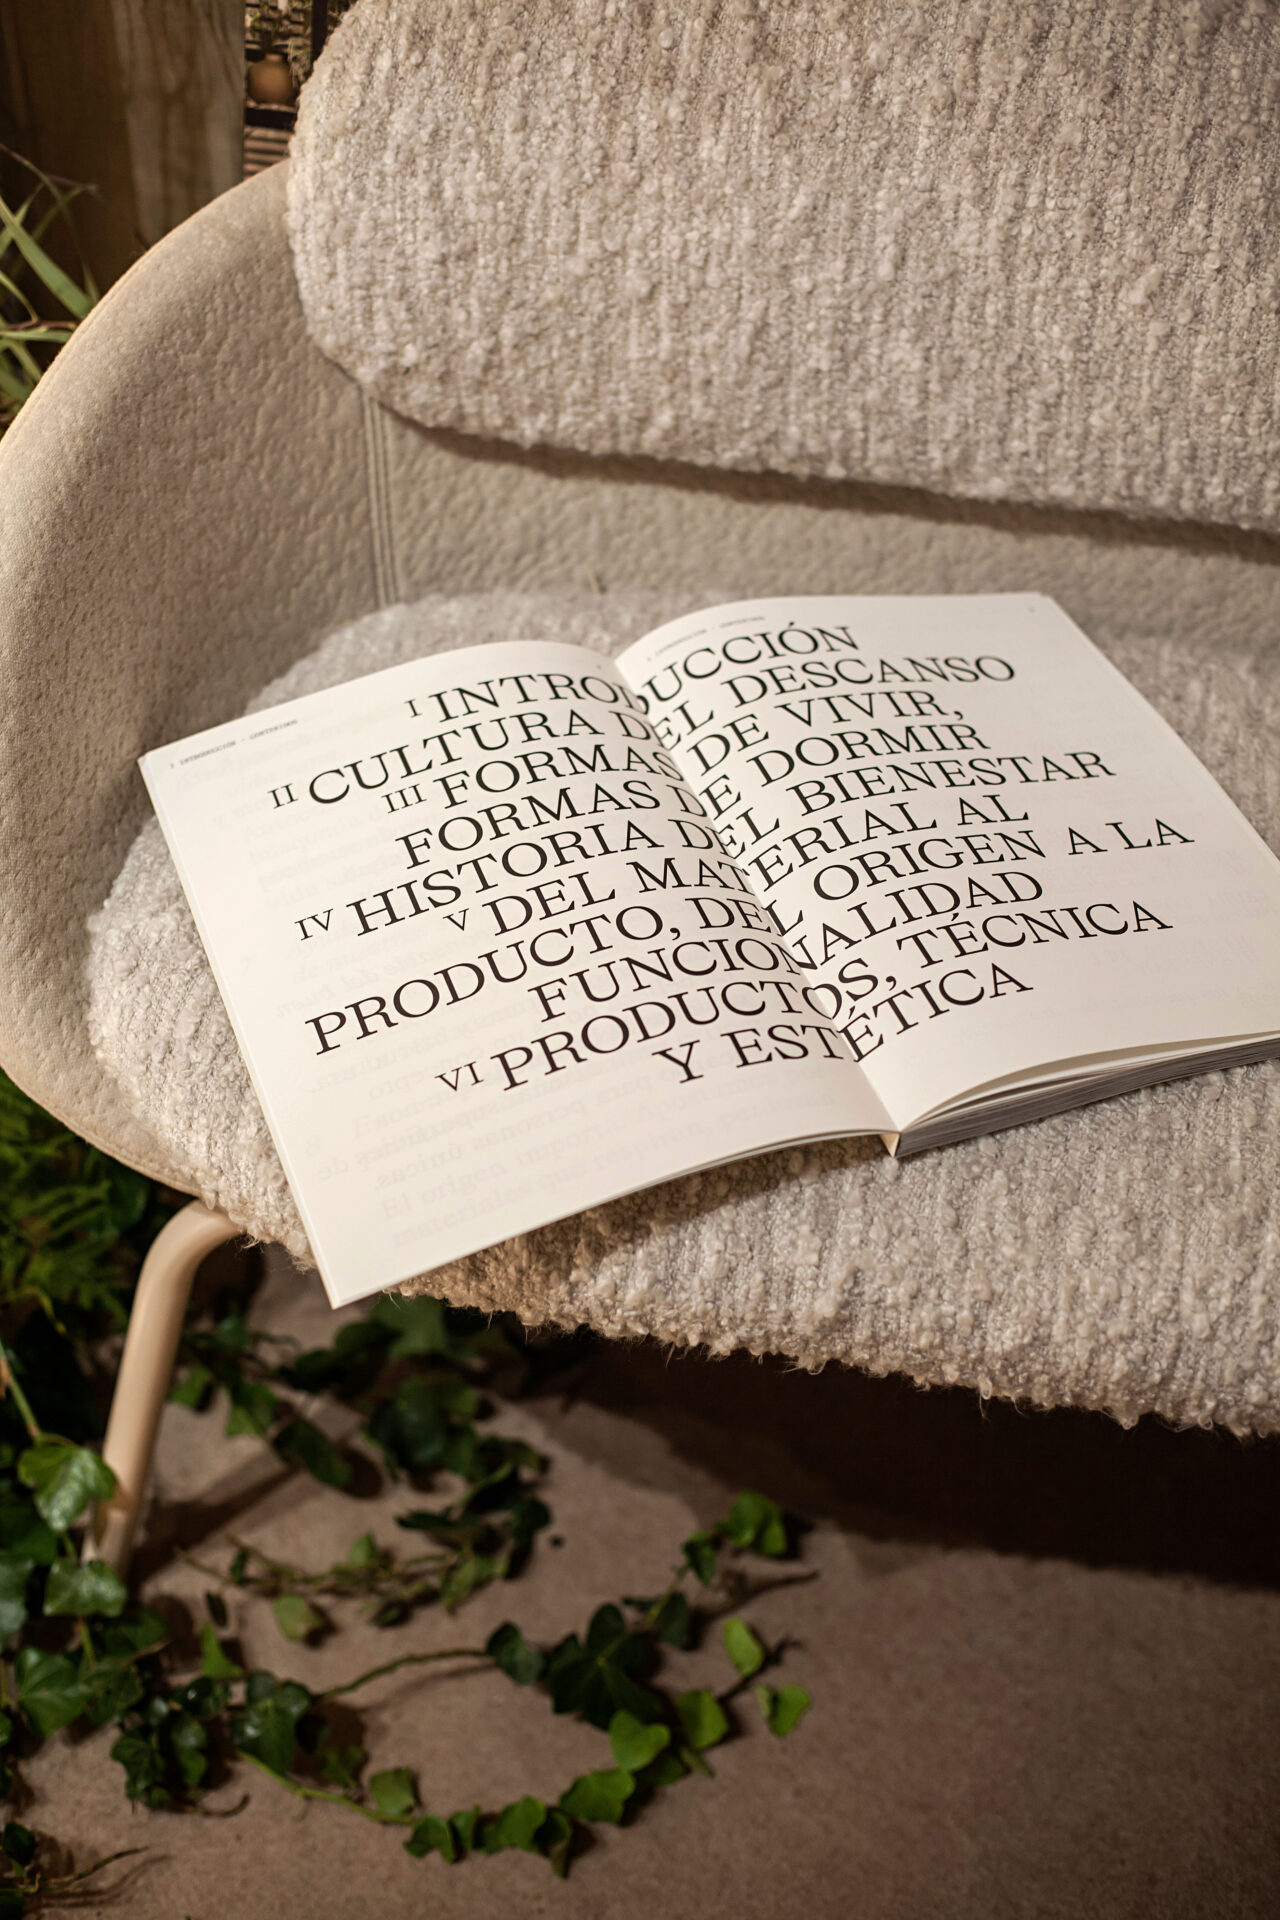 I INTRODUCCIÓN - CONTENIDOS
I INTRODUCCIÓN - CONTENIDOS
I INTRODUCCIÓN
II CULTURA DEL DESCANSO
III FORMAS DE VIVIR,
FORMAS DE DORMIR
IV HISTORIA DEL BIENESTAR
V DEL MATERIAL AL
PRODUCTO, DEL ORIGEN A LA
FUNCIONALIDAD
VI PRODUCTOS, TÉCNICA
Y ESTÉTICA